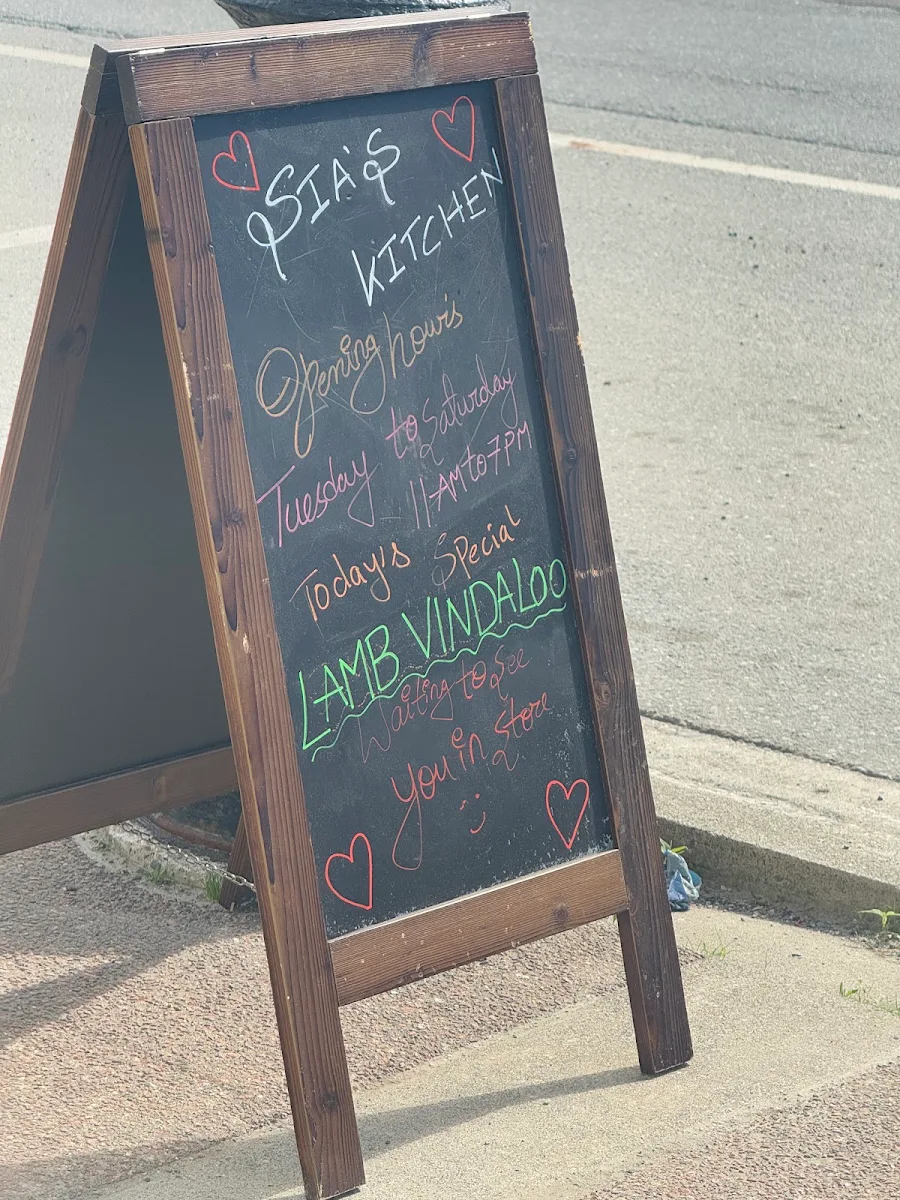 SIA'S
KITCHEN
Opening hours
Tuesday to Saturday
11AM to 7PM
Today's Special
LAMB VINDALOO
Waiting to See
you in Store